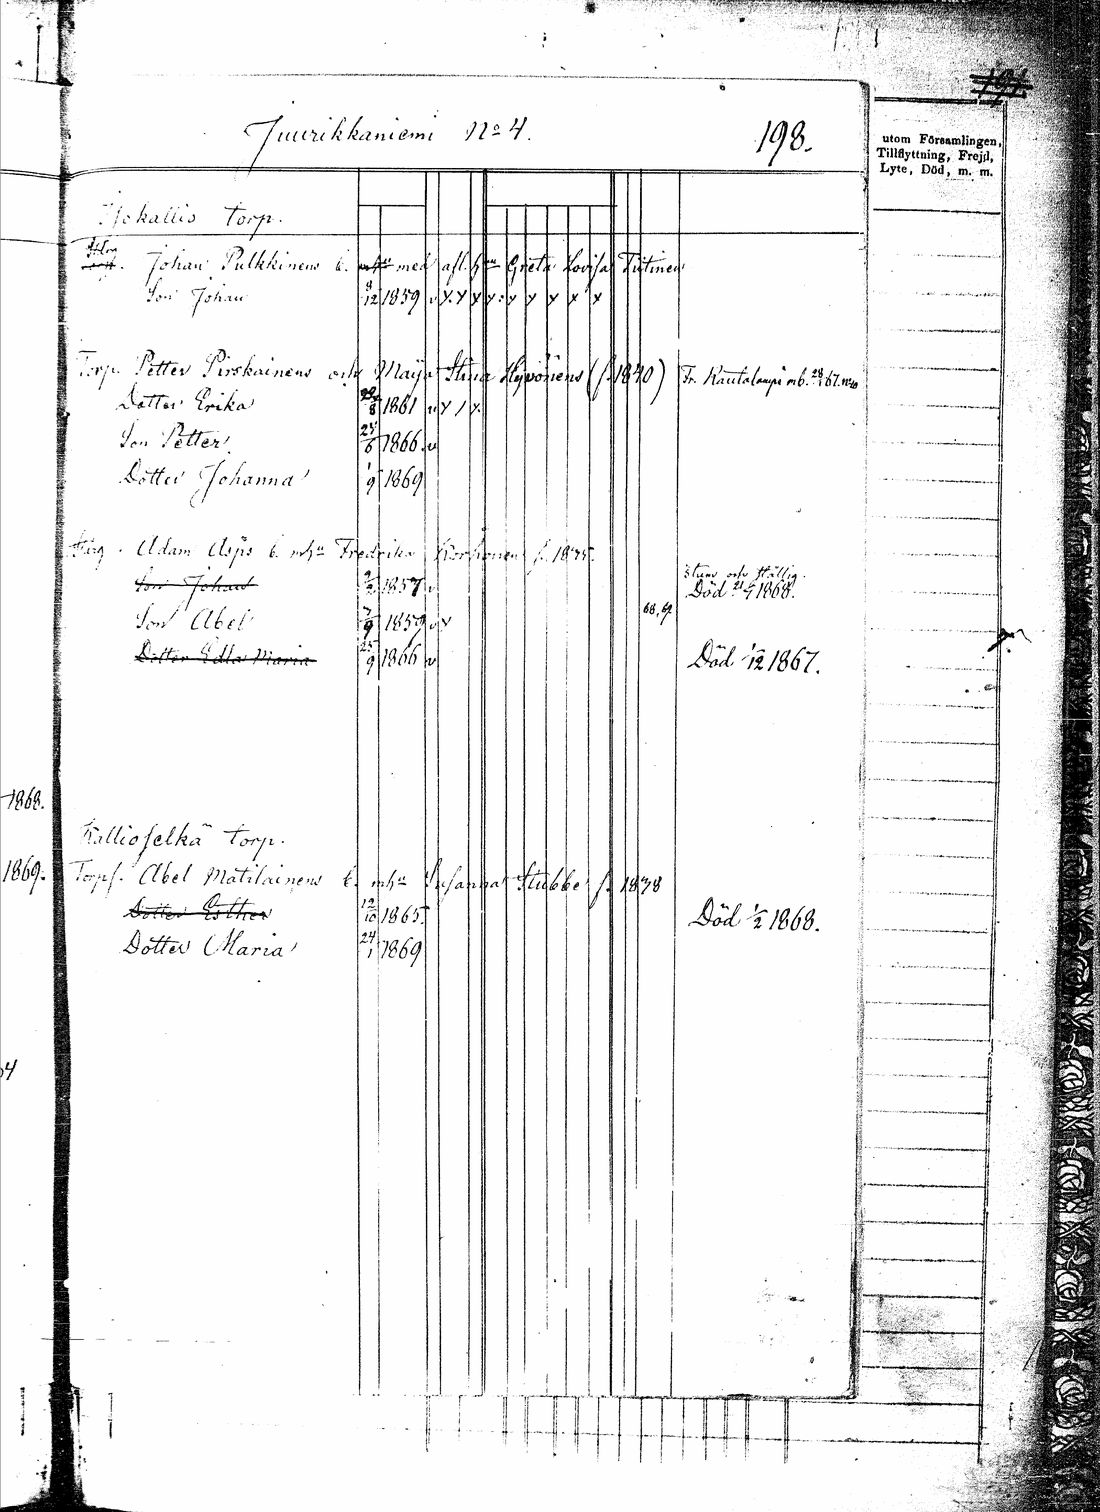 Juurikkaniemi No 4.
198.
utom Församlingen,
Tillflyttning, Frejd,
Lyte, Död, m. m.
Isokallio torp.
Johan Pulkkinens b. med afl. hu Greta Lovisa Tiitinen
Son Johan 8/12 1859 v x x x x x x x x x
Torp. Petter Pirskainens och Maija Stina Hyvönens (f. 1840) Fr. Rautalampi mb. 28/1 67. No
Dotter Erika 1861 v x / x
Son Petter 1866. v
Dotter Johanna 1/9 1869
Adam Asps b. mhu Fredrika Korhonen f.
Stum och fallig.
Son Johan 9/2 1857 v Död 1868.
68, 69
Son Abel 7/9 1859 v x
Dotter Edla Maria 25/9 1866 v Död 1/12 1867.
1868.
Kallioselkä torp.
1869. Torp. Abel Matilainens b. mhu Susanna Stubbe f. 1838
Dotter Esther 12/10 1865. Död 1/2 1868.
Dotter Maria 24/1 1869